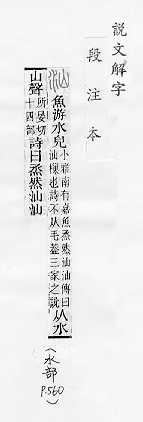 說文解字
段注本
魚游水皃小雅南有嘉魚烝然汕汕傳曰汕樔也詩不从毛葢三家之說从水
山聲所晏切十四部詩曰烝然汕汕
(水部 P.560)